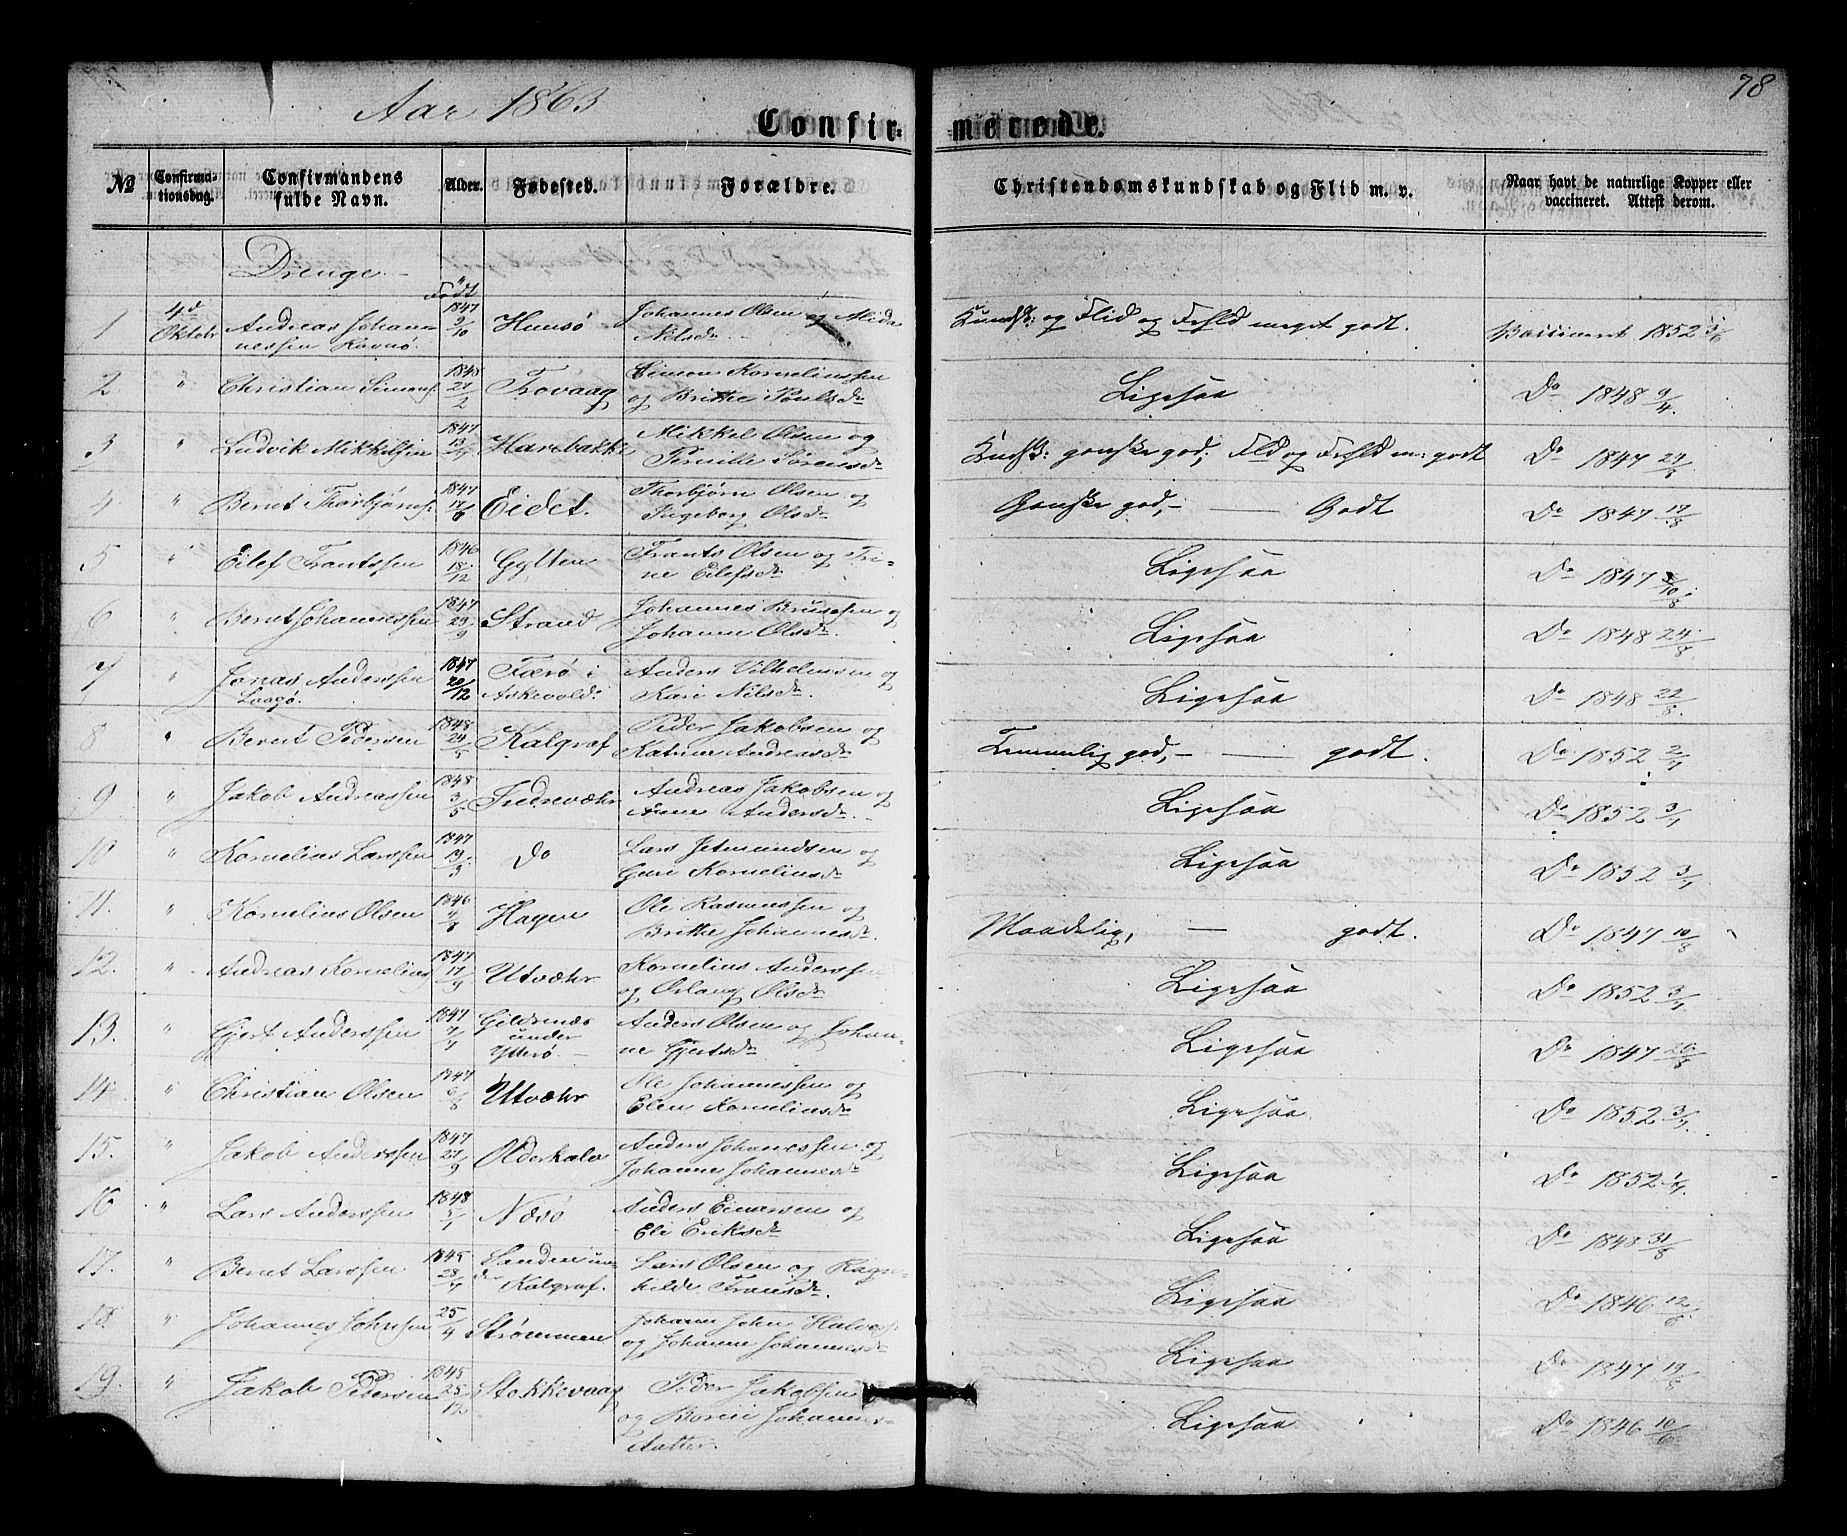 78
Aar 1863
Confirmerede.
No
Confirmationsdag.
Confirmandens fulde Navn.
Alder.
Fødested.
Forældre.
Christendomskundskab og Flid m. v.
Naar havt de naturlige Kopper eller vaccineret. Attest derom.
Drenge.
Født
1 4d Oktobr Andreas Johannessen 1847 9/10 Johannes Olsen og Nilsdr. Kundsk: og Flid og Forhld meget godt. Vaccineret 1852
2 " Christian Simons. 1848 21/2 Trovaag Simon Korneliussen og Brithe Poulsdr. Ligesaa Do 1848 9/4
3 " Ludvik Mikkelsen 1847 Harebakke Mikkel Olsen og Pernille Sørensdr. Kundsk: ganske god; Fld og Forhld m: godt Do 1847
4 " Bernt Thorbjørns. 1847 Eidet. Thorbjørn Olsen og Ingeborg Olsdr. Ganske god, — Godt Do 1847 17/8
5 " Eilef Frantssen 1846 18/12 Gylten Frants Olsen og Trine Eilefsdr. Ligesaa Do 1847
6 " Bernt Johannessen 1847 29/9 Strand Johannes Brusesen og Johanne Olsdr. Ligesaa Do 1848 24/8
7 " Jonas Anderssen 1847 20/12 Færø i Askevold: Anders Vilhelmsen og Kari Nilsdr. Ligesaa Do 1848 22/8
8 " Bernt Pedersen 1848 24/5 Kalgraf Peder Jakobsen og Katrine Andreasdr. Temmelig god, — godt. Do 1852 2/7
9 " Jakob Andreassen 1848 3/5 Indrevæhr Andreas Jakobsen og Anne Andersdr. Ligesaa Do 1852 3/7
10 " Kornelius Larssen 1847 19/3 Do Lars Jetmundsen og Guri Korneliusdr. Ligesaa Do 1852 3/7
11. " Kornelius Olsen 1846 Hagen Ole Rasmussen og Brithe Johannesdr. Maadelig, — godt. Do 1847 10/8
12. " Andreas Kornelius 1847 Utvæhr Kornelius Anderssen og Oslaug Olsdr. Ligesaa Do 1852 3/7
13. " Gjert Anderssen 1847 Gildrenæs under Ytterø. Anders Olsen og Johanne Gjertsdr. Ligesaa Do 1847
14. " Christian Olsen 1847 6/8 Utvæhr Ole Johannessen og Elen Korneliusdr. Ligesaa Do 1852 3/7
15. " Jakob Anderssen 1847 27/9 Olderkalv Anders Johannessen og Johanne Johannesdr. Ligesaa Do 1852
16 " Lars Anderssen 1848 5/1 Næsø Anders Einarsen og Eli Eriksdr. Ligesaa Do 1848 31/8
17. " Bernt Larssen. 1845 Sanden under Kalgraf. Lars Olsen og Ragnhilde Fransdr. Ligesaa Do 1846 12/8
18. " Johannes Johnsen 25/4 Strømmen John og Johanne Johannesdr. Ligesaa Do 1847 19/8
19. " Jakob Pedersen 1845 25/12 Stokkevaag Peder Jakobsen og Johannesdatter. Ligesaa Do 1846 10/6